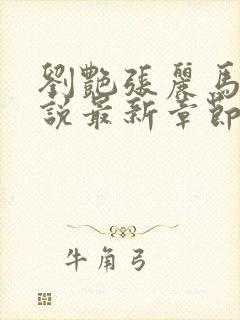 劉艷張麗馬
說最新章節
牛角弓